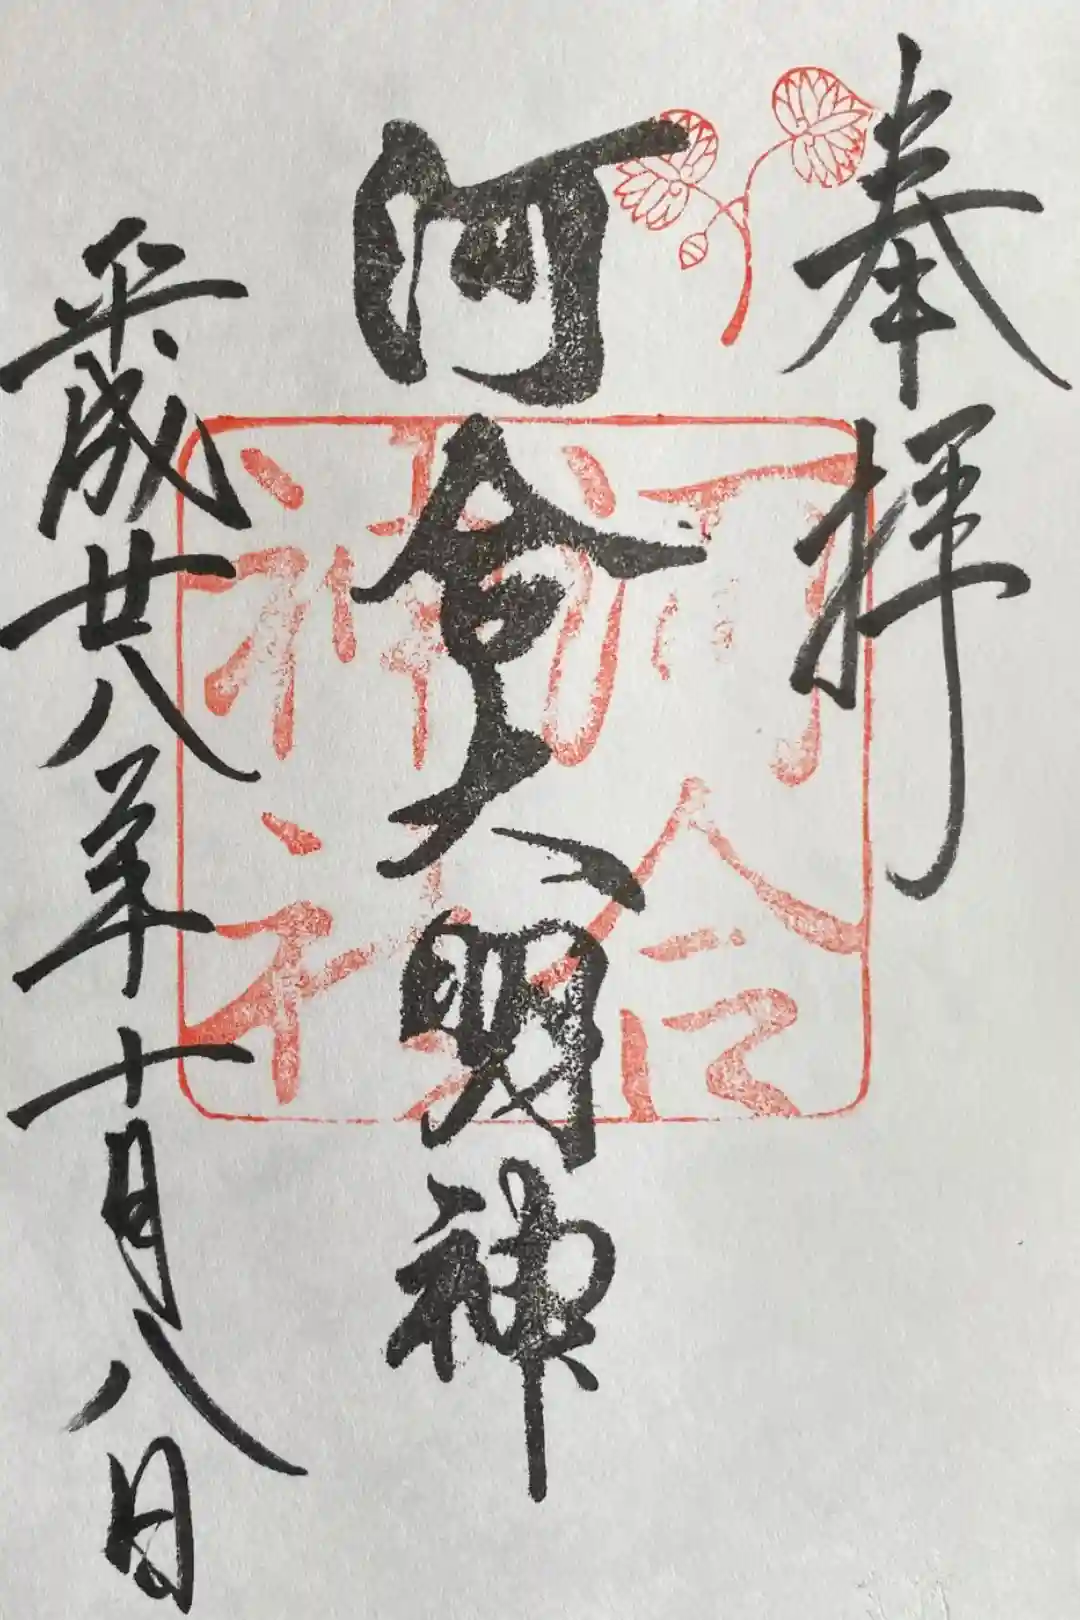 奉拝
河合大明神
河合
神社
平成廿八年十月八日